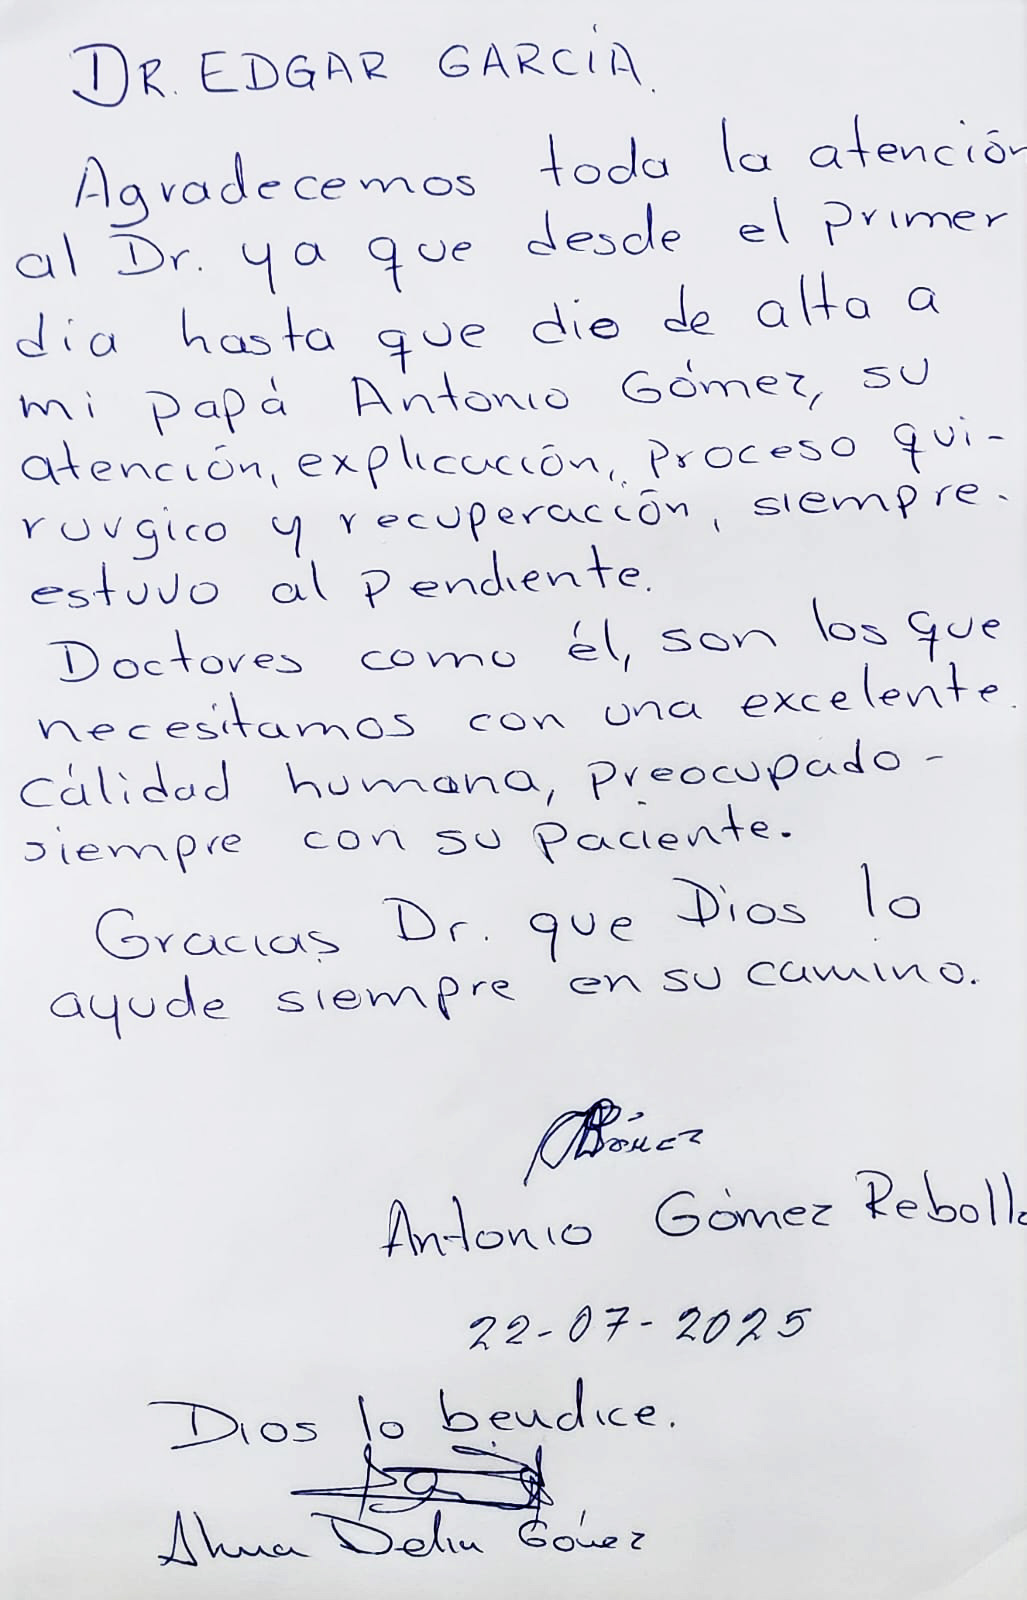 DR. EDGAR GARCÍA.
Agradecemos toda la atención
al Dr. ya que desde el primer
día hasta que dio de alta a
mi papá Antonio Gómez, su
atención, explicación, proceso qui-
rurgico y recuperación, siempre.
estuvo al pendiente.
Doctores como él, son los que
necesitamos con una excelente.
cálidad humana, preocupado -
siempre con su paciente.
Gracias Dr. que Dios lo
ayude siempre en su camino.
Gómez
Antonio Gómez Reboll
22-07-2025
Dios lo bendice.
Delia Gómez